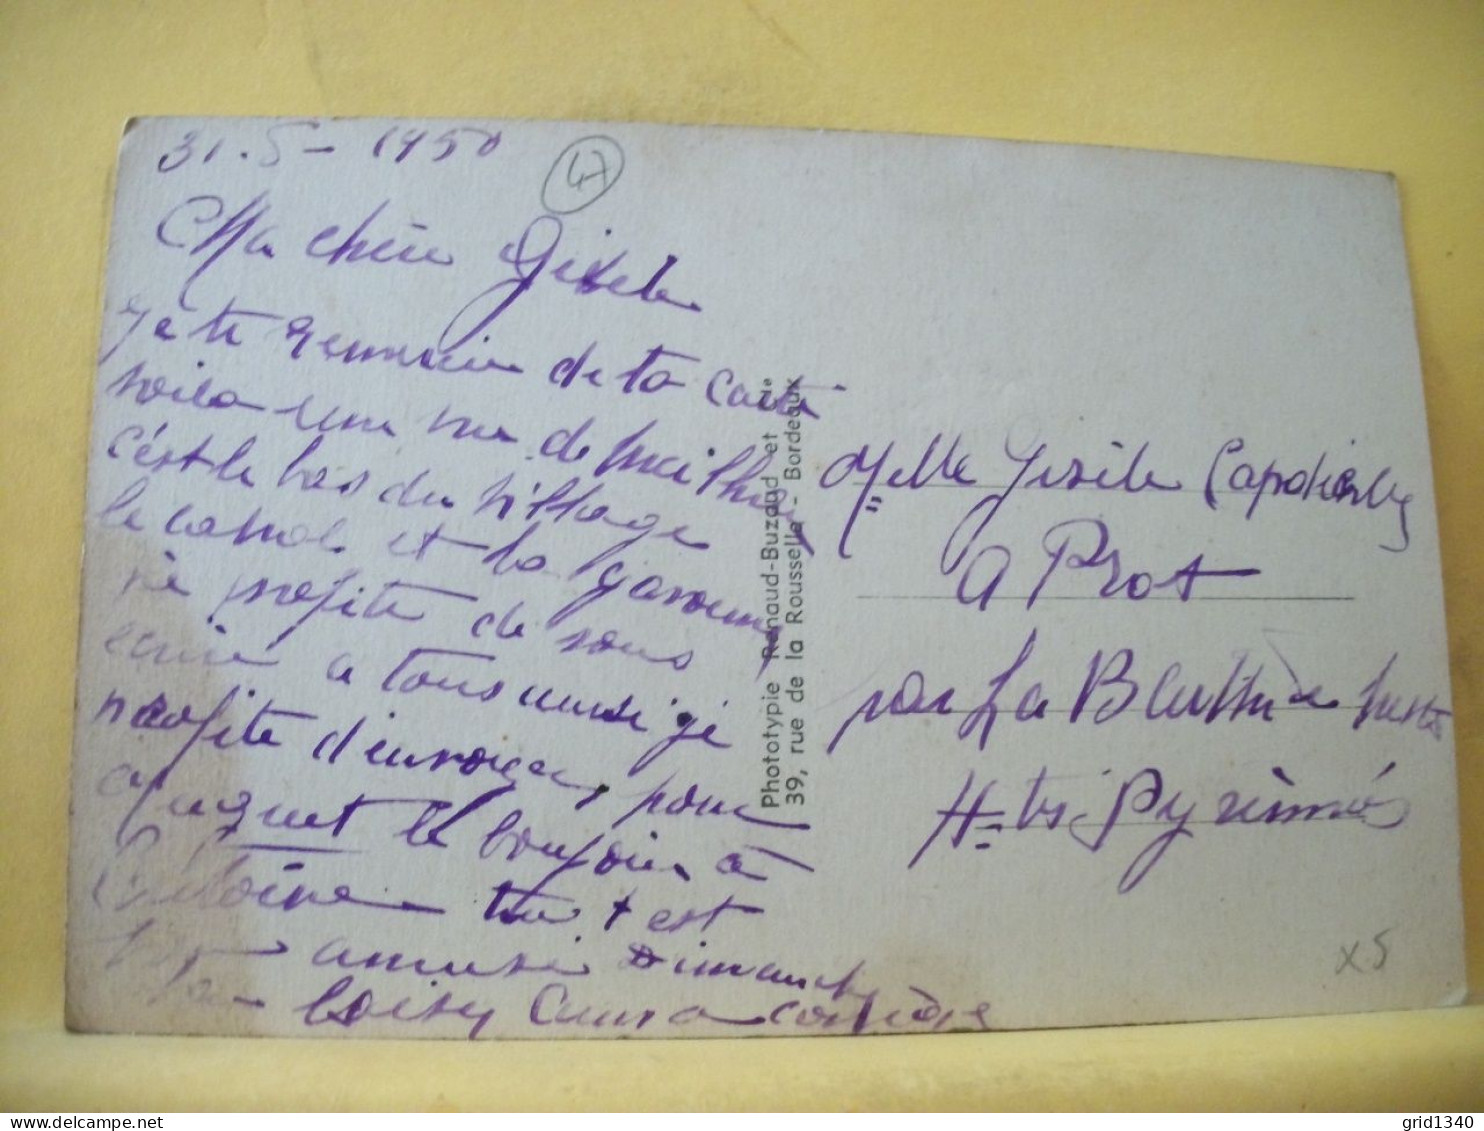 31.5-1950
47
Ma chère Gisèle
Je te remercie de ta carte
voila une vue de Meilhan
c'est le bas du village
le canal et la garonne
je profite de vous
écrire a tous aussi je
profite d'envoyer, pour
le bonjour à
Antoine tu t est
amusé Dimanche
Phototypie Renaud-Buzaud et Cie
39, rue de la Rousselle - Bordeaux
Melle Gisèle
a Prat
par La Barthe
Htes Pyrénnées
x5
grid1340